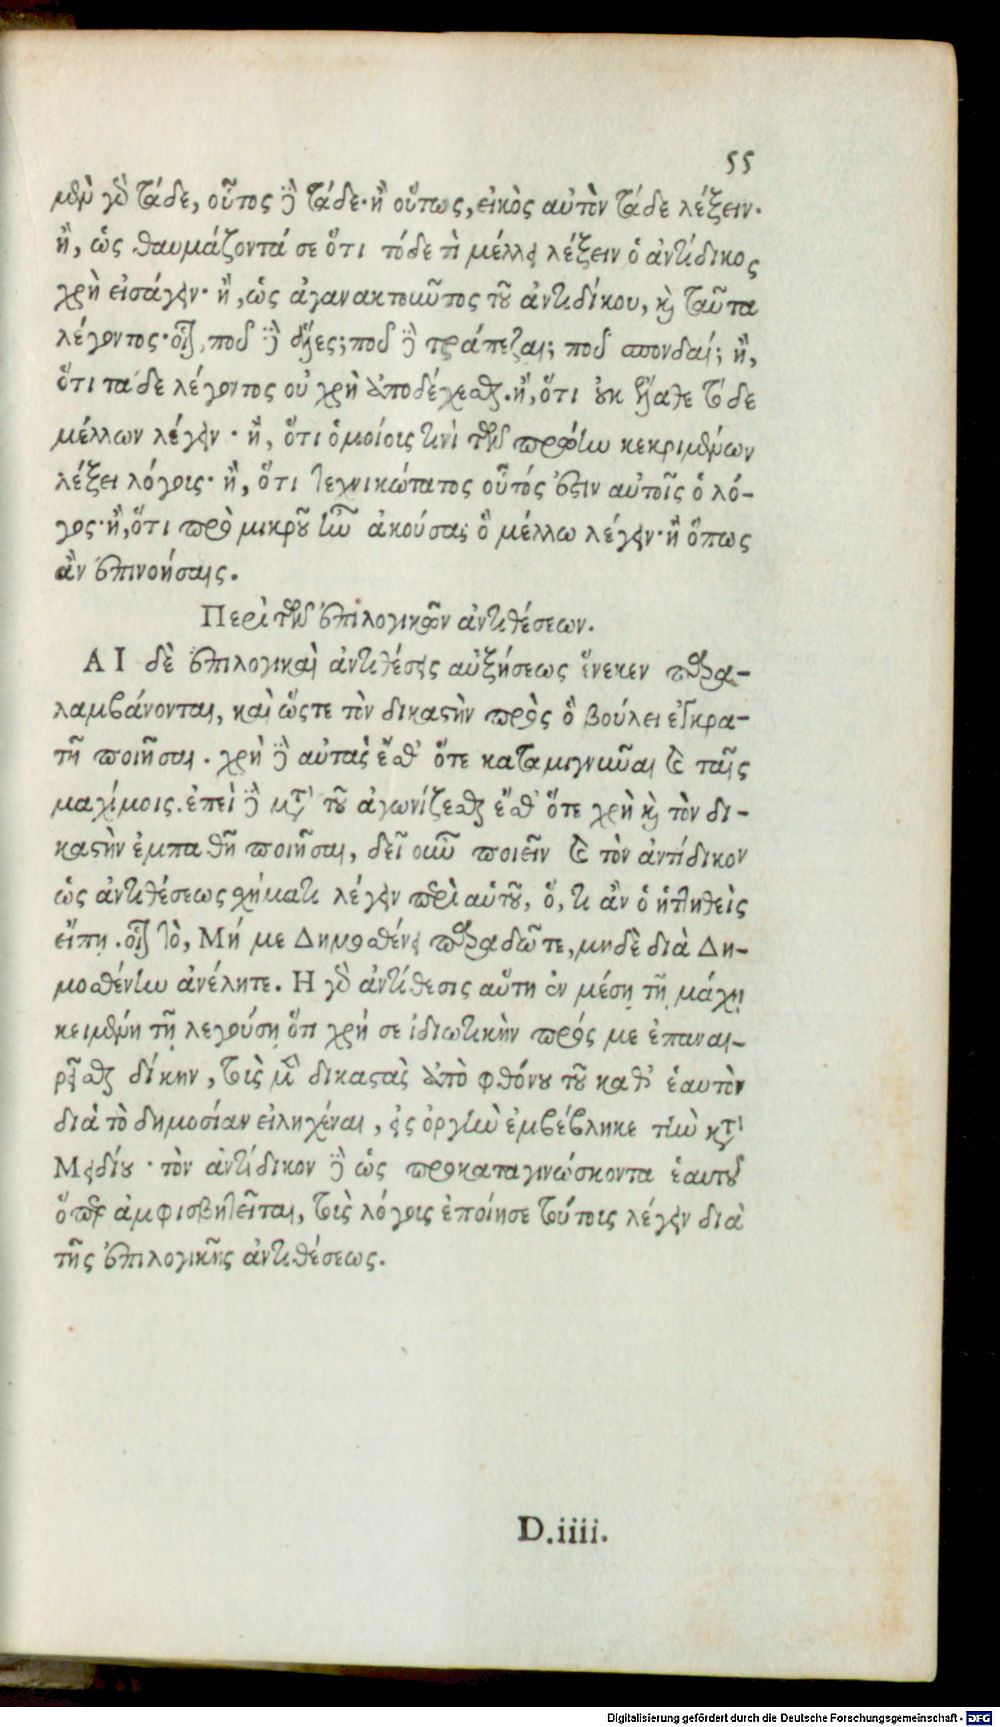 55
μὲν γὰρ τάδε, οὗτος δὲ τάδε· ἢ οὕτως, εἰκὸς αὐτὸν τάδε λέξειν·
ἢ, ὡς θαυμάζοντά σε ὅτι τόδε τὶ μέλλει λέξειν ὁ ἀντίδικος
χρὴ εἰσάγειν· ἢ, ὡς ἀγανακτοῦντος τοῦ ἀντιδίκου, καὶ ταῦτα
λέγοντος· οἷον, ποῦ δὲ ἅλες; ποῦ δὲ τράπεζαι; ποῦ σπονδαί; ἢ,
ὅτι τάδε λέγοντος οὐ χρὴ ἀποδέχεσθαι. ἢ, ὅτι οὐκ ᾔσθε τόδε
μέλλων λέγειν· ἢ, ὅτι ὁμοίοις τινὶ τῶν πρώην κεκριμένων
λέξει λόγοις· ἢ, ὅτι τεχνικώτατος οὗτός ἐστιν αὐτοῖς ὁ λό-
γος· ἢ, ὅτι πρὸ μικροῦ ἦν ἀκούσας ὃ μέλλω λέγειν· ἢ ὅπως
ἂν ἐπινοήσαις.
Περὶ τῶν ἐπιλογικῶν ἀντιθέσεων.
ΑΙ δὲ ἐπιλογικαὶ ἀντιθέσεις αὐξήσεως ἕνεκεν παρα-
λαμβάνονται, καὶ ὥστε τὸν δικαστὴν πρὸς ὃ βούλει ἐγκρα-
τῆ ποιῆσαι. χρὴ δὲ αὐτὰς ἔσθ' ὅτε καταμιγνῦναι καὶ ταῖς
μαχίμοις. ἐπεὶ δὲ μετὰ τοῦ ἀγωνίζεσθαι ἔσθ' ὅτε χρὴ καὶ τὸν δι-
καστὴν ἐμπαθῆ ποιῆσαι, δεῖ οὖν ποιεῖν καὶ τὸν ἀντίδικον
ὡς ἀντιθέσεως σχήματι λέγειν περὶ αὑτοῦ, ὅ, τι ἂν ὁ ἡττηθεὶς
εἴπῃ. οἷον τὸ, Μή με Δημοσθένει παραδῶτε, μηδὲ διὰ Δη-
μοσθένην ἀνέλητε. Η γὰρ ἀντίθεσις αὕτη ἐν μέσῃ τῇ μάχῃ
κειμένη τῇ λεγούσῃ ὅτι χρή σε ἰδιωτικὴν πρός με ἐπαναι-
ρεῖσθαι δίκην, τοὺς μὲν δικαστὰς ἀπὸ φθόνου τοῦ καθ' ἑαυτὸν
διὰ τὸ δημοσίαν εἰληχέναι, εἰς ὀργὴν ἐμβέβληκε τὴν κατὰ
Μειδίου· τὸν ἀντίδικον δὲ ὡς προκαταγινώσκοντα ἑαυτοῦ
ὅπερ ἀμφισβητεῖται, τοὺς λόγους ἐποίησε τούτους λέγειν διὰ
τῆς ἐπιλογικῆς ἀντιθέσεως.
D.iiii.
Digitalisierung gefördert durch die Deutsche Forschungsgemeinschaft - DFG